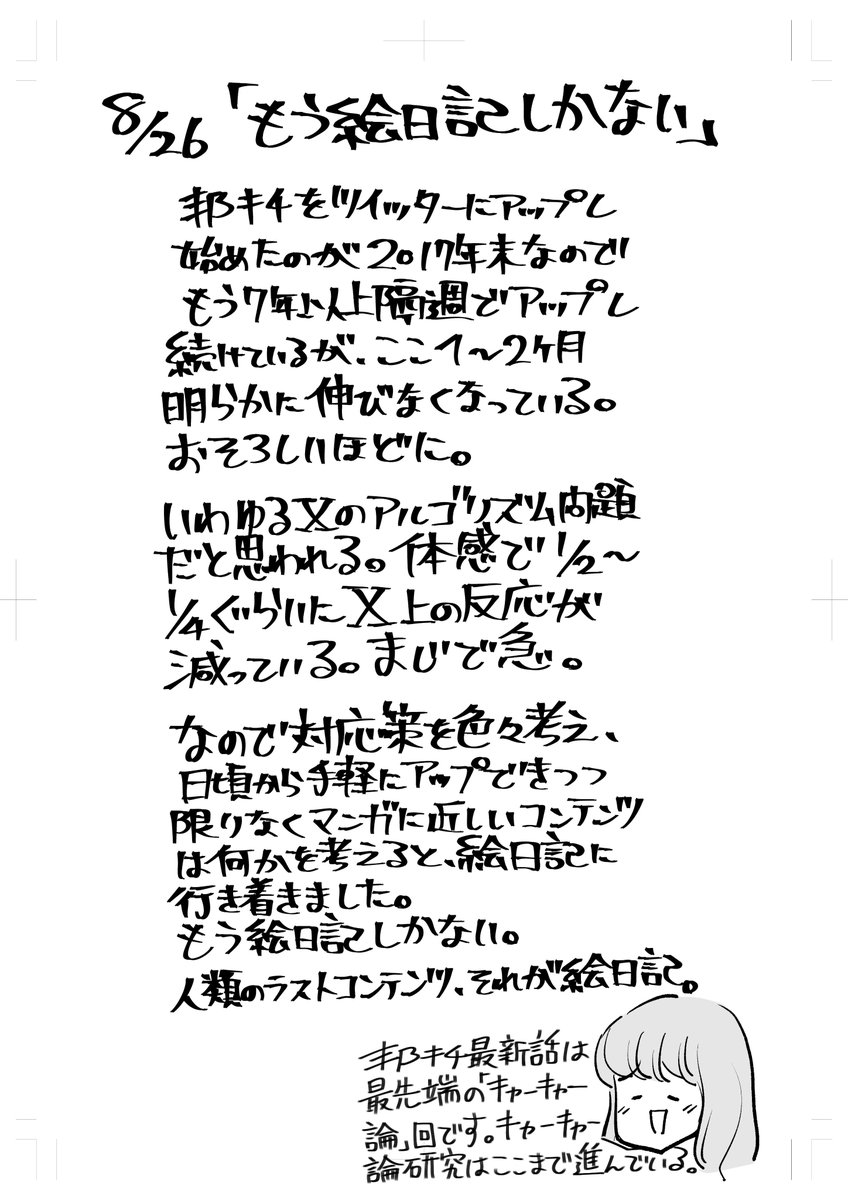 8/26「もう絵日記しかない」
邦キチをツイッターにアップし
始めたのが2017年末なので
もう7年以上隔週でアップし
続けているが、ここ1〜2ヶ月
明らかに伸びなくなっている。
おそろしいほどに。
いわゆるXのアルゴリズム問題
だと思われる。体感で1/2〜
1/4ぐらいにX上の反応が
減っている。まじで急。
なので対応策を色々考え、
日頃から手軽にアップできつつ
限りなくマンガに近しいコンテンツ
は何かを考えると、絵日記に
行き着きました。
もう絵日記しかない。
人類のラストコンテンツ、それが絵日記。
邦キチ最新話は
最先端の「キャーキャー
論」回です。キャーキャー
論研究はここまで進んでいる。